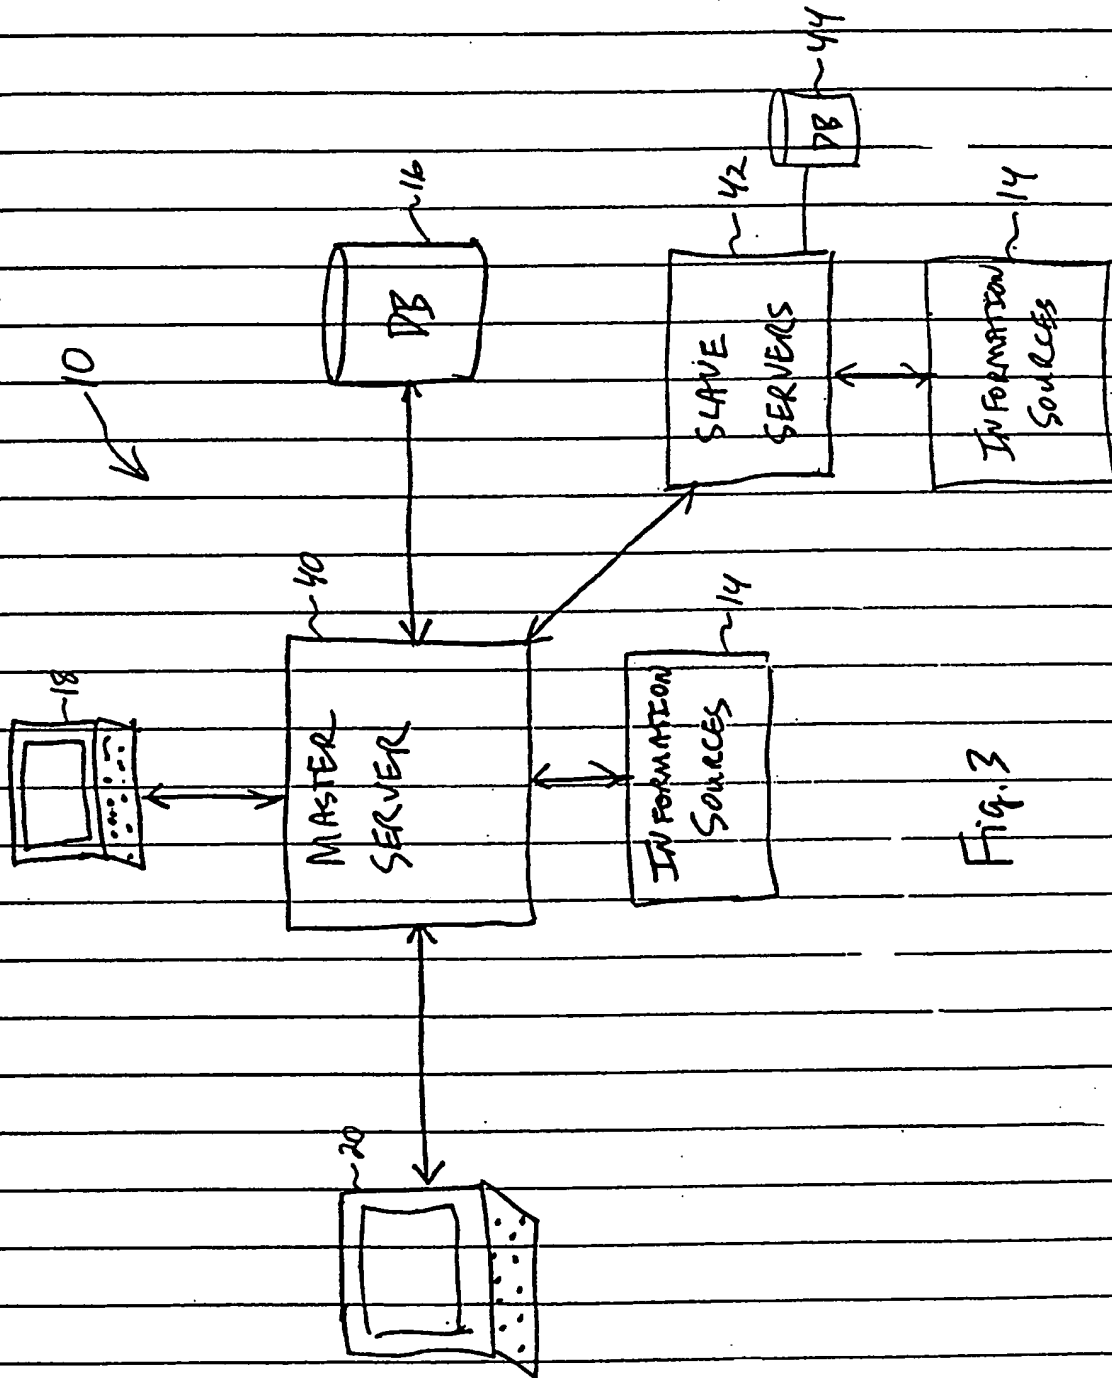 18
10
20
40
16
MASTER
SERVER
DB
INFORMATION
SOURCES
14
SLAVE
SERVERS
42
DB
44
INFORMATION
SOURCES
14
Fig. 3